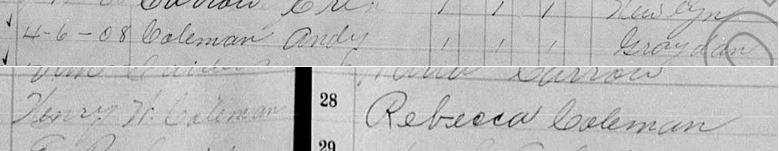 4-6-08 Coleman Andy 1 1 1 Graydan
Henry W. Coleman 28 Rebecca Coleman
29